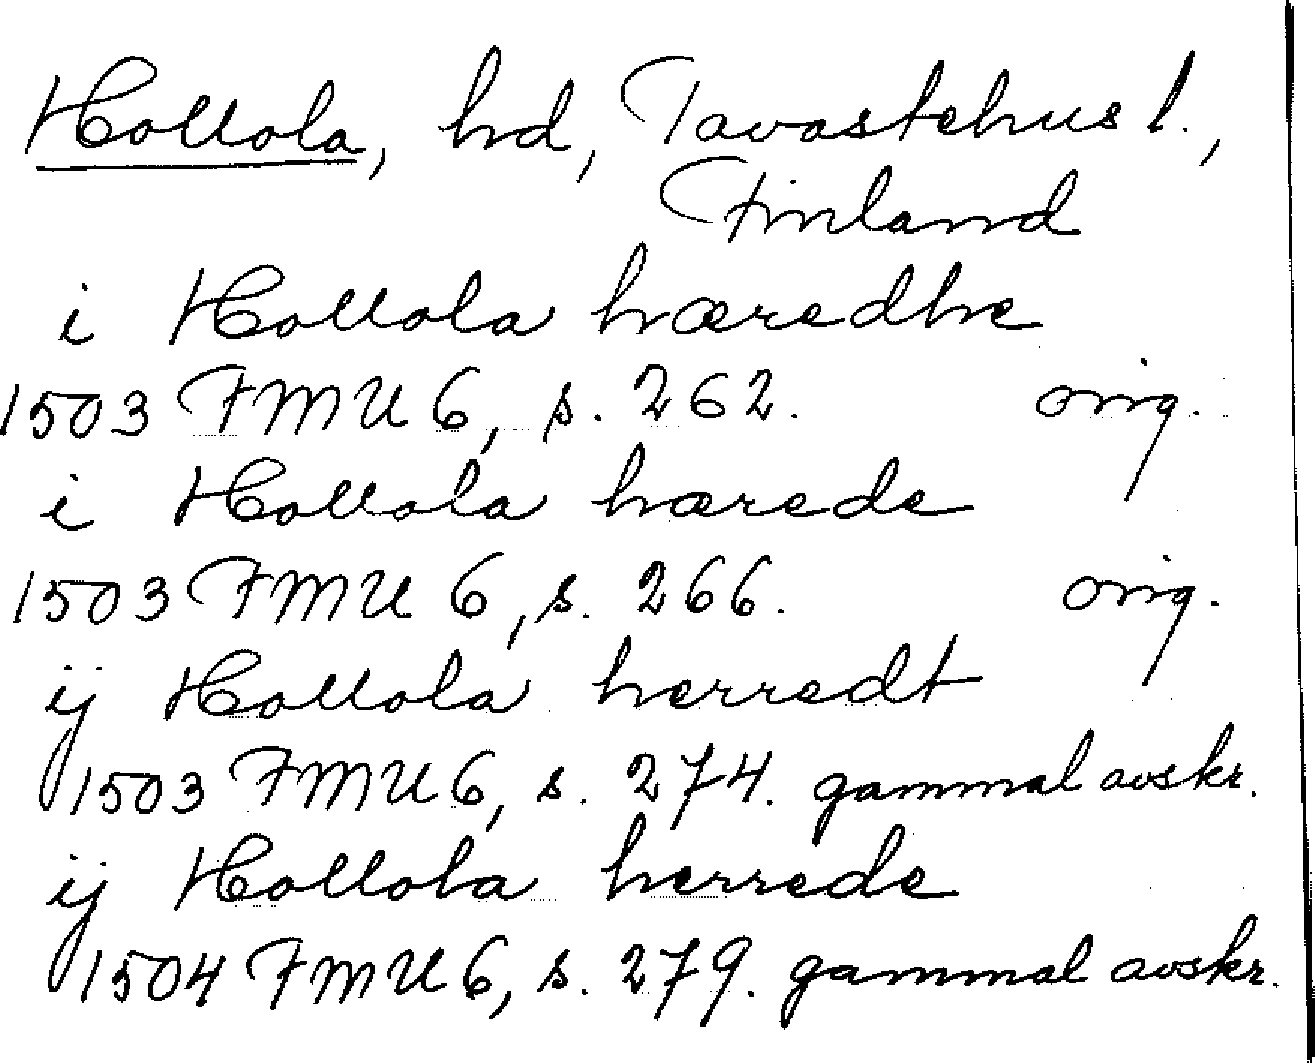 Hollola, hd, Tavastehus l.,
Finland
i Hollola hæredhe
1503 FMU 6, s. 262. orig.
i Hollola hærede
1503 FMU 6, s. 266. orig.
ij Hollola herredt
1503 FMU 6, s. 274. gammal avskr.
ij Hollola herrede
1504 FMU 6, s. 279. gammal avskr.